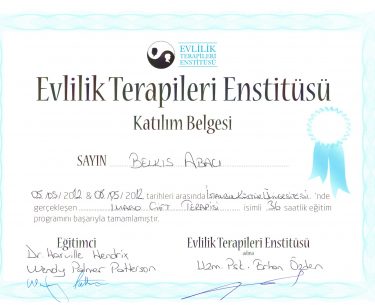 EVLİLİK
TERAPİLERİ
ENSTİTÜSÜ
Evlilik Terapileri Enstitüsü
Katılım Belgesi
SAYIN Belkıs Abacı
05/05/2012 & 06/05/2012 tarihleri arasında İstanbul Kültür Üniversitesi 'nde
gerçekleşen Imago Çift Terapisi isimli 36 saatlik eğitim
programını başarıyla tamamlamıştır.
Eğitimci
Dr. Harville Hendrix
Wendy Palmer Patterson
Evlilik Terapileri Enstitüsü
adına
Uzm. Psk. Erhan Özden